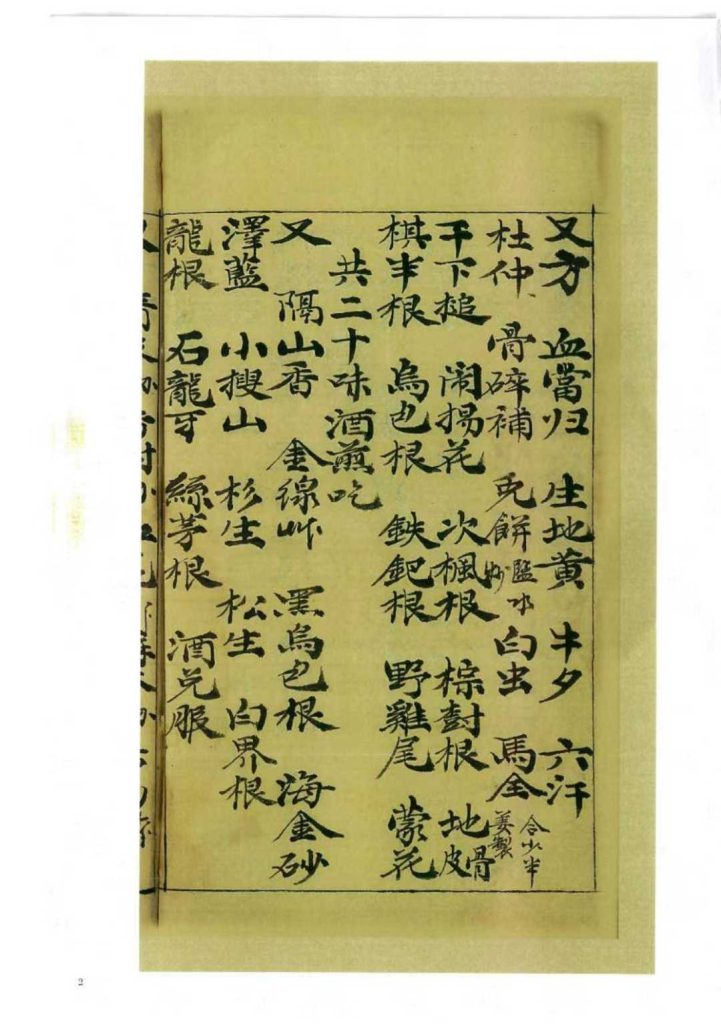 又方 血當归 生地黄 牛夕 六汗
杜仲 骨碎補 兎餅 盬水炒 白虫 馬全 姜製 令少半
千下搥 闹揚花 次楓根 棕樹根 地骨皮
棋半根 烏包根 鉄鈀根 野雞尾 蒙花
共二十味酒煎吃
又 隔山香 金線艸 黑烏包根 海金砂
澤藍 小搜山 杉生 松生 白界根
龍根 石龍牙 絲茅根 酒兑服
2